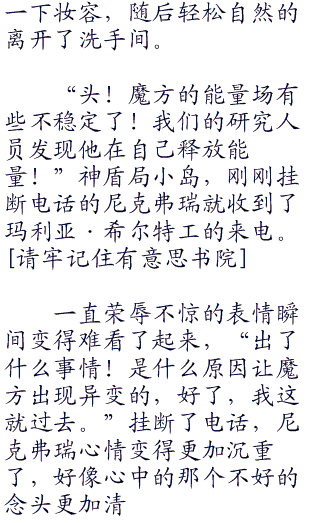 一下妆容，随后轻松自然的
离开了洗手间。
“头！魔方的能量场有
些不稳定了！我们的研究人
员发现他在自己释放能
量！”神盾局小岛，刚刚挂
断电话的尼克弗瑞就收到了
玛利亚·希尔特工的来电。
[请牢记住有意思书院]
一直荣辱不惊的表情瞬
间变得难看了起来，“出了
什么事情！是什么原因让魔
方出现异变的，好了，我这
就过去。”挂断了电话，尼
克弗瑞心情变得更加沉重
了，好像心中的那个不好的
念头更加清